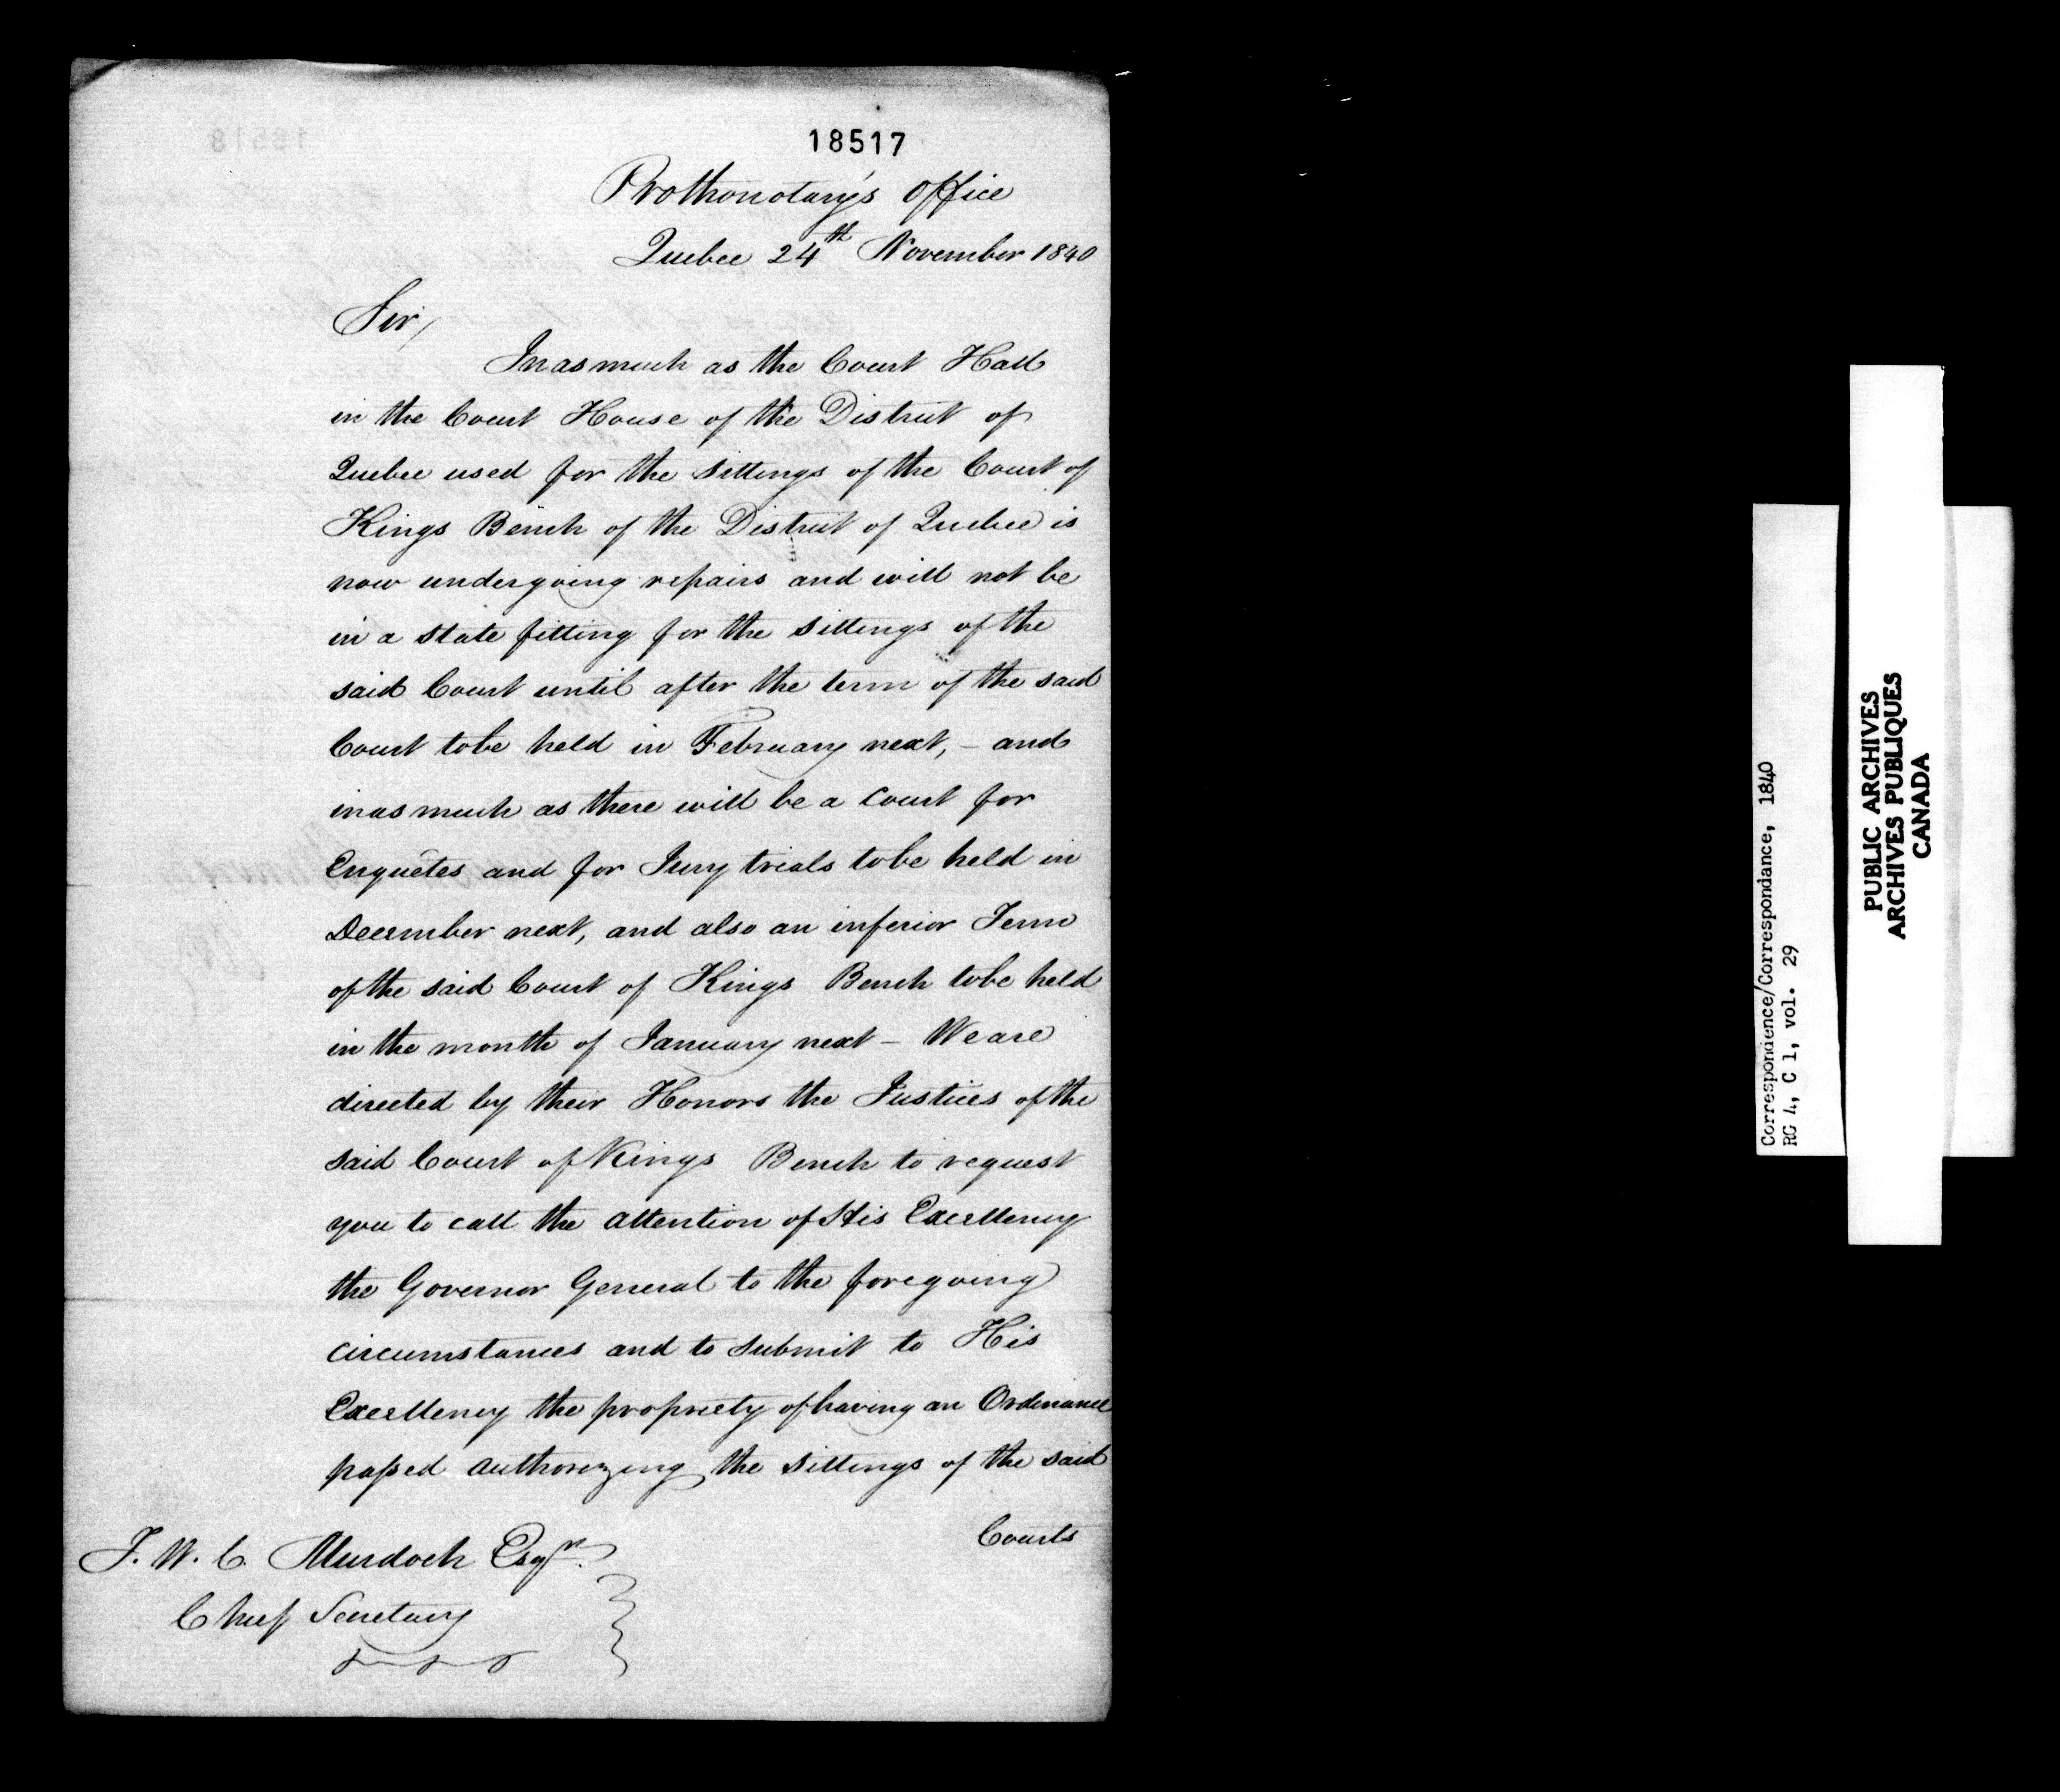 18517
Prothonotary's Office
Quebec 24th November 1840
Sir,
Inasmuch as the Court Hall
in the Court House of the District of
Quebec used for the sittings of the Court of
Kings Bench of the District of Quebec is
now undergoing repairs and will not be
in a state fitting for the sittings of the
said Court until after the term of the said
Court to be held in February next, - and
inasmuch as there will be a Court for
Enquêtes and for Jury trials to be held in
December next, and also an inferior Term
of the said Court of Kings Bench to be held
in the month of January next - We are
directed by their Honors the Justices of the
said Court of Kings Bench to request
you to call the attention of His Excellency
the Governor General to the foregoing
circumstances and to submit to His
Excellency the propriety of having an Ordinance
passed authorizing the sittings of the said
Courts
T. W. C. Murdoch Esqre.
Chief Secretary
Correspondence/Correspondance, 1840
RG 4, C 1, vol. 29
PUBLIC ARCHIVES
ARCHIVES PUBLIQUES
CANADA